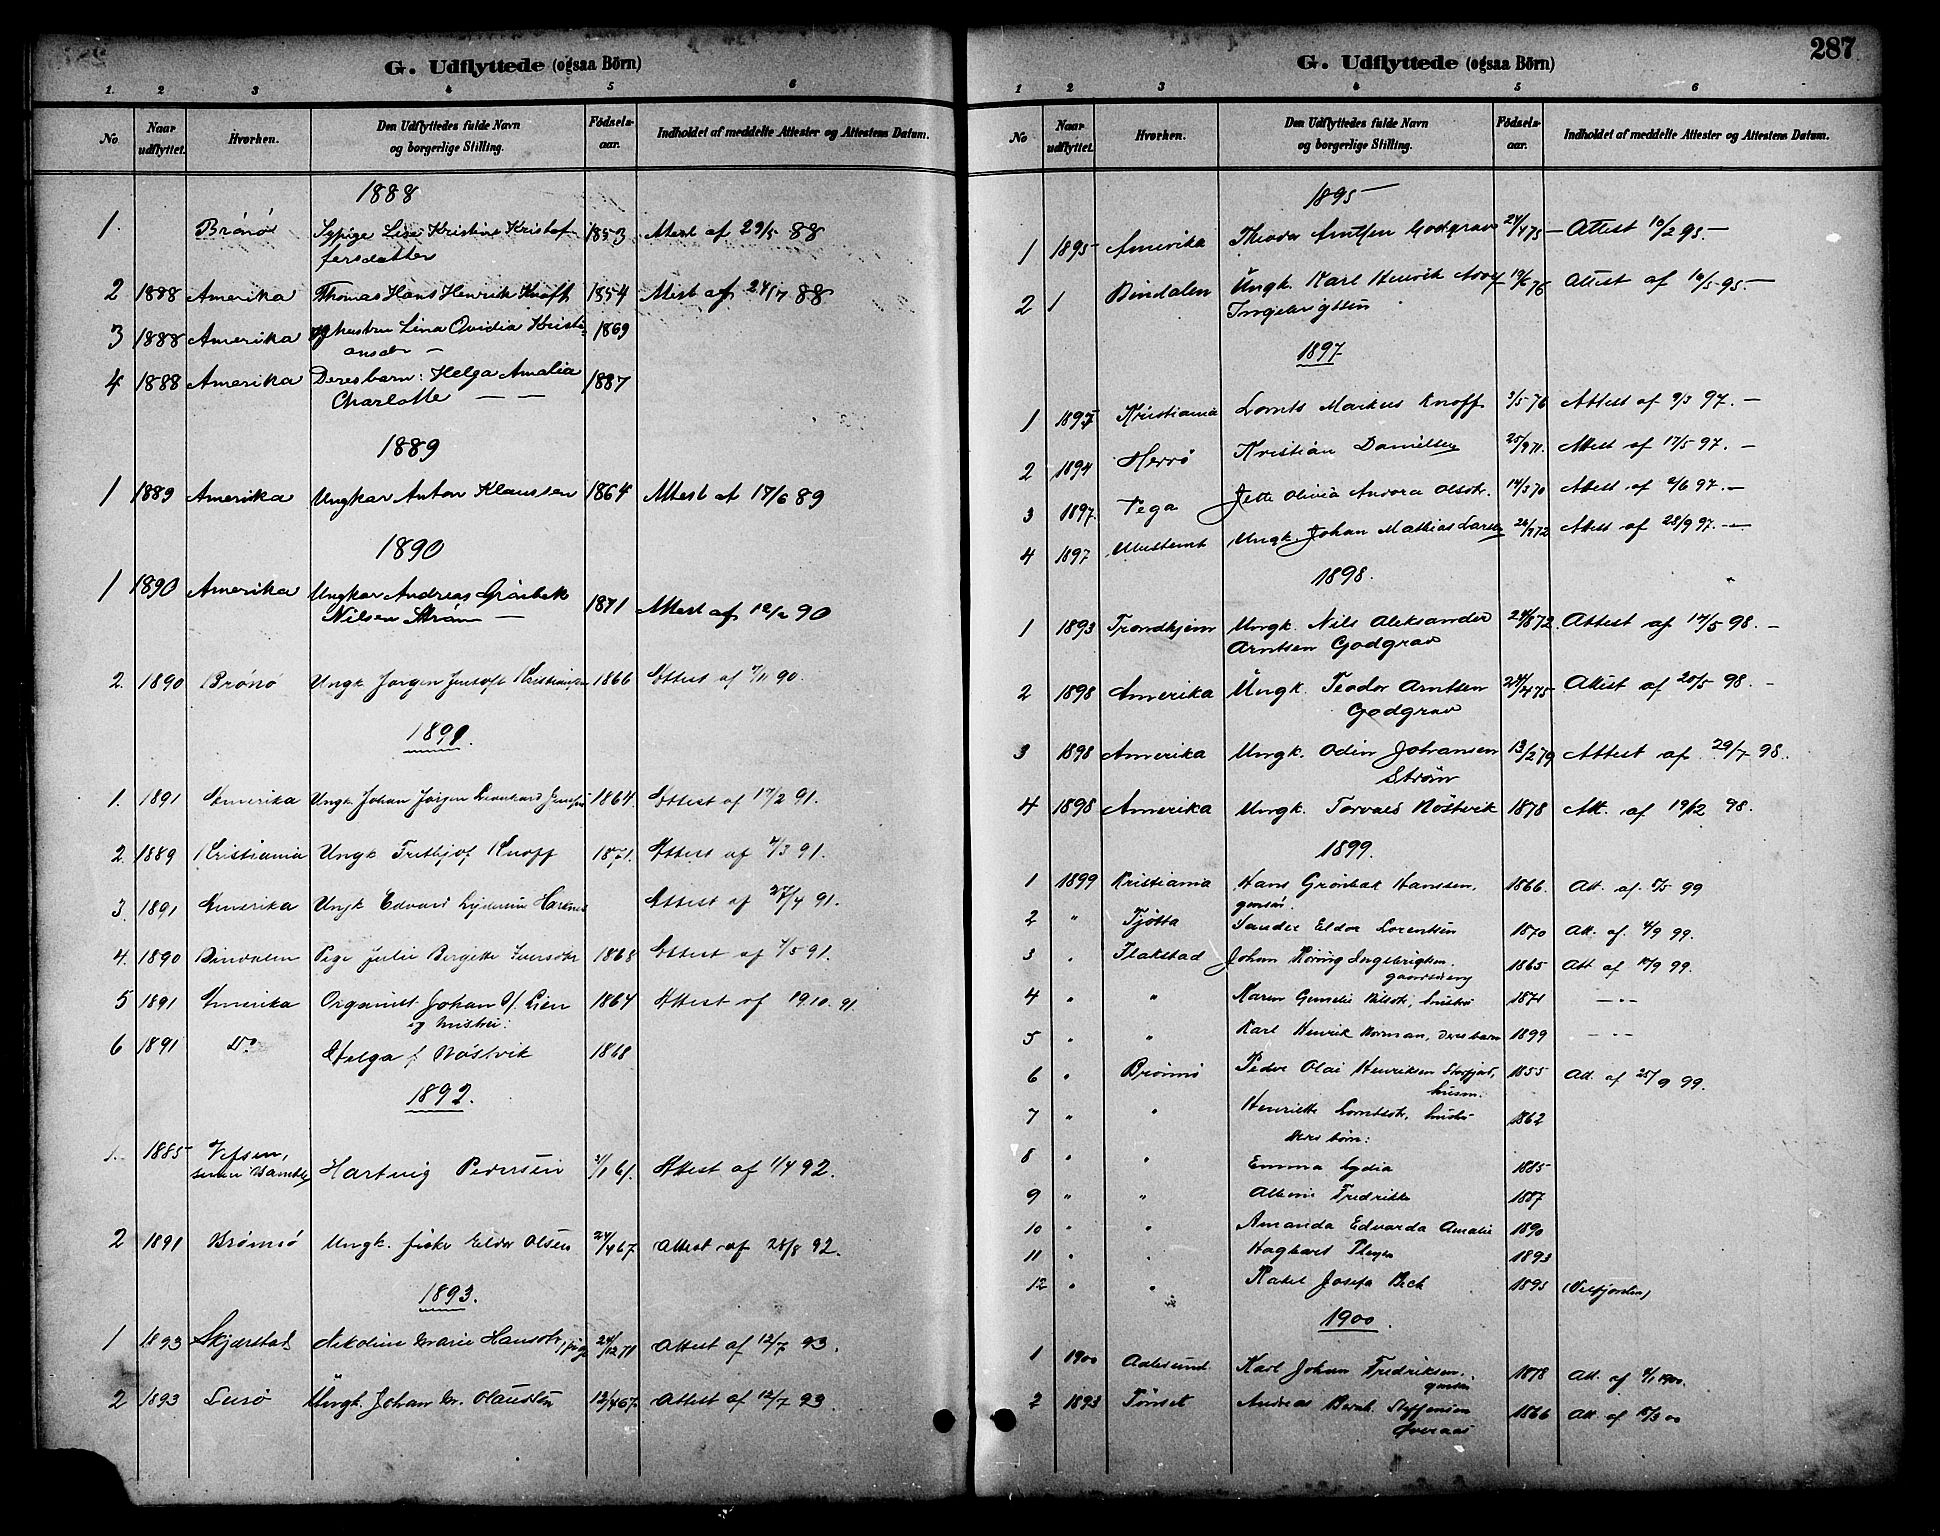 G. Udflyttede (ogsaa Börn)
1. 2 3 4 5 6
No Naar udflyttet. Hvorhen. Den Udflyttedes fulde Navn og borgerlige Stilling. Fødsels-aar. Indholdet af meddelte Attester og Attestens Datum.
1888
1. Brönö Lise Kristine Kristof- 1853 Attest af 29/5 88
fersdatter
2 1888 Amerika Thomas Hans Henrik Knoff 1854 Attest af 24/7 88
3 1888 Amerika og hustru Lina Ovidia Kristi- 1869
ansdr —
4 1888 Amerika Deres barn: Helga Amalia 1887
Charlotte — —
1889
1 1889 Amerika Ungkar Anton Klaussen 1864 Attest af 17/6 89
1890
1 1890 Amerika Ungkar Andreas Grönbek
Nilsen Ström — 1871 Attest af 12/2 90
2. 1890 Brönö Ungk Jörgen Kristiansen 1866 Attest af 7/11 90.
1891.
1. 1891 Amerika Ungk Johan Jörgen Leonhard 1864. Attest af 17/2 91.
2. 1889 Kristiania Ungk Frithjof Knoff 1871. Attest af 7/3 91.
3. 1891 Amerika Ungk Edvard Attest af 27/4 91.
4. 1890 Bindalen Pige Julie Bergitte Iversdtr 1868 Attest af 7/5 91.
5 1891 Amerika Organist Johan Lien 1864 Attest af 19.10.91.
og hustru:
6 1891 Do Helga f. Röstvik 1868
1892.
1. 1885 Vefsen,
Hartvig Pedersen 3/1 61. Attest af 1/4 92.
2 1891 Brönnö Ungk. Eldor Olsen 24/4 67. Attest af 28/8 92.
1893.
1 1893 Skjærstad Nikoline Marie Hansdtr, pige 24/12 71 Attest af 12/7 93.
2 1893 Lurö Ungk. Johan M. Olaussen 12/4 67. Attest af 12/7 93.
287
G. Udflyttede (ogsaa Börn)
1 2 3 4 5 6
No Naar udflyttet. Hvorhen. Den Udflyttedes fulde Navn og borgerlige Stilling. Fødsels-aar. Indholdet af meddelte Attester og Attestens Datum.
1895
1 1895 Amerika Theodor Arntsen Godgrav 24/4 75 Attest 10/2 95.
2 Bindalen Ungk. Karl Henrik 19/6 76 Attest af 10/5 95.
Ingebrigtsen
1897
1 1897 Kristiania Lornts Markus Knoff 3/5 76 Attest af 9/3 97.
2 1894 Herrö Kristian Danielsen 25/9 71. Attest af 17/5 97.
3 1897. Vega Jette Olivia Andora Olsdtr. 14/3 70 Attest af 2/6 97.
4 1897 Ungk. Johan Mathias Larsen 26/7 72 Attest af 28/9 97.
1898.
1 1893 Trondhjem Ungk. Nils Aleksander 24/8 72. Attest af 14/5 98.
Arntsen Godgrav
2 1898 Amerika Ungk. Teodor Arntsen 24/4 75 Attest af 20/5 98.
Godgrav
3 1898 Amerika Ungk. Odin Johansen 13/2 79 Attest af 29/7 98.
Ström
4 1898 Amerika Ungk. Torvald Röstvik 1878 Att. af 19/12 98.
1899.
1 1899 Kristiania Hans Grönbæk Hanssen, 1866. Att. af 8/5 99
2 " Tjötta Sander Eldor Lorentsen 1870 Att. af 4/9 99.
3 " Flakstad Johan Ingebrigtsen. 1865 Att. af 17/9 99.
4 " " Karen Nilsdtr, hustru 1871 — " —
5 " " Karl Henrik Norman, deres barn 1899 — " —
6 " Brönnö Peder Olai Henriksen 1855 Att. af 25/9 99.
husm.
7 " " Henriette Lorntsdtr, hustru 1862
Deres börn:
8 " " Emma Lydia 1885
9 " " Albine Fredrikke 1887
10 " Amanda Edvarda Amalie 1890
11 " " Hagbart 1893
12 " " Rakel Josefa Bech 1895 (Velfjorden)
1900.
1 1900 Aalesund. Karl Johan Fredriksen. 1878 Att. af 4/1 1900.
2 1893 Tönset Andreas Bernh. Steffensen 1866 Att. af 15/3 00
Överaas